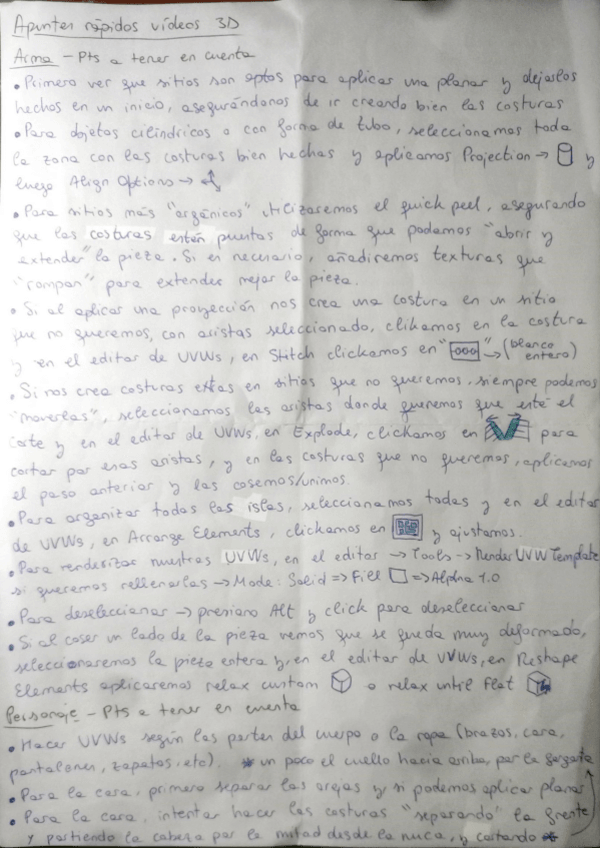 Apuntes rápidos vídeos 3D
Arma - Pts a tener en cuenta
• Primero ver que sitios son aptos para aplicar una planar y dejarlos
hechos en un inicio, asegurándonos de ir creando bien las costuras
• Para objetos cilíndricos o con forma de tubo, seleccionamos toda
la zona con las costuras bien hechas y aplicamos Projection → y
luego Align Options →
• Para sitios más "orgánicos" utilizaremos el quick peel, asegurando
que las costuras estén puestas de forma que podamos "abrir y
extender" la pieza. Si es necesario, añadiremos texturas que
"rompan" para extender mejor la pieza.
• Si al aplicar una proyección nos crea una costura en un sitio
que no queremos, con aristas seleccionado, clikamos en la costura
y en el editor de UVWs, en Stitch clickamos en " " → (blanco
entero)
• Si nos crea costuras extras en sitios que no queremos, siempre podemos
"moverlas", seleccionamos las aristas donde queremos que esté el
corte y en el editor de UVWs, en Explode, clickamos en para
cortar por esas aristas, y en las costuras que no queremos, aplicamos
el paso anterior y las cosemos/unimos.
• Para organizar todas las islas, seleccionamos todas y en el editor
de UVWs, en Arrange Elements, clickamos en y ajustamos.
• Para renderizar nuestras UVWs, en el editor → Tools → Render UVW Template
si queremos rellenarlas → Mode: Solid => Fill => Alpha 1.0
• Para deseleccionar → presiono Alt y click para deseleccionar
• Si al coser un lado de la pieza vemos que se queda muy deformado,
seleccionaremos la pieza entera y, en el editor de UVWs, en Reshape
Elements aplicaremos relax custom o relax until flat
Personaje - Pts a tener en cuenta
• Hacer UVWs según las partes del cuerpo o la ropa (brazos, cara,
pantalones, zapatos, etc). * un poco el cuello hacia arriba, por la garganta
• Para la cara, primero separar las orejas y si podemos aplicar planar
• Para la cara, intentar hacer las costuras "separando" la frente
y partiendo la cabeza por la mitad desde la nuca, y cortando *